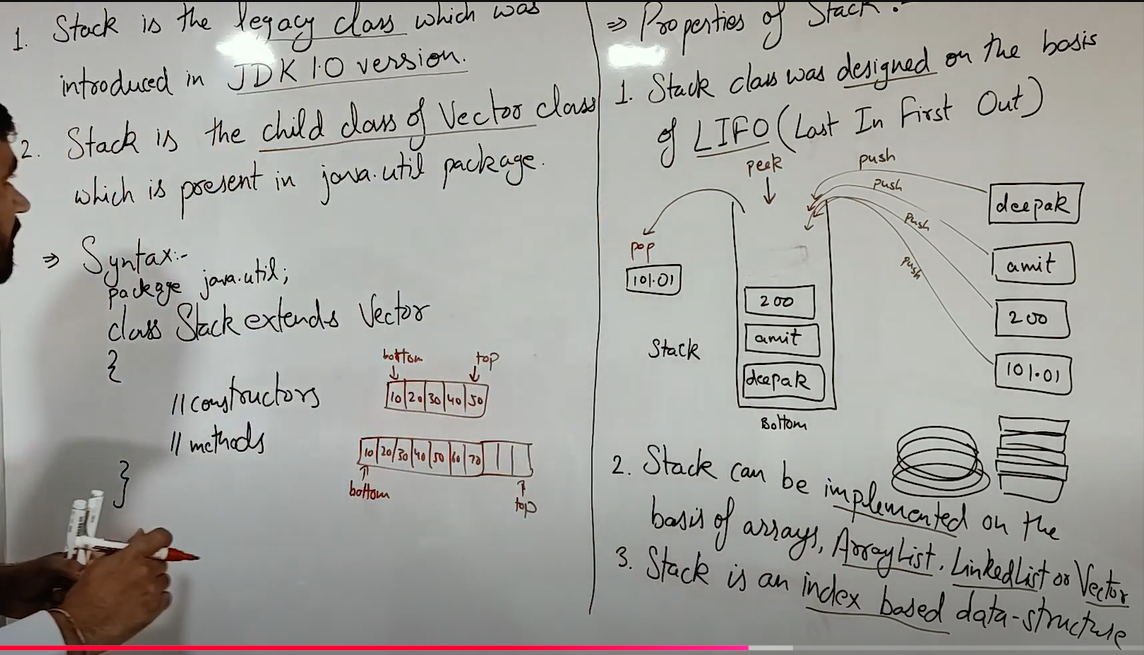 1. Stack is the legacy class which was
introduced in JDK 1.0 version.
2. Stack is the child class of Vector class
which is present in java.util package.
⇒ Syntax:-
package java.util;
class Stack extends Vector
{
// constructors
// methods
}
bottom top
10 20 30 40 50
10 20 30 40 50 60 70
bottom
top
⇒ Properties of Stack:-
1. Stack class was designed on the basis
of LIFO (Last In First Out)
peek
push
push
push
push
pop
101.01
Stack
200
amit
deepak
Bottom
deepak
amit
200
101.01
2. Stack can be implemented on the
basis of arrays, ArrayList, LinkedList or Vector
3. Stack is an index based data-structure